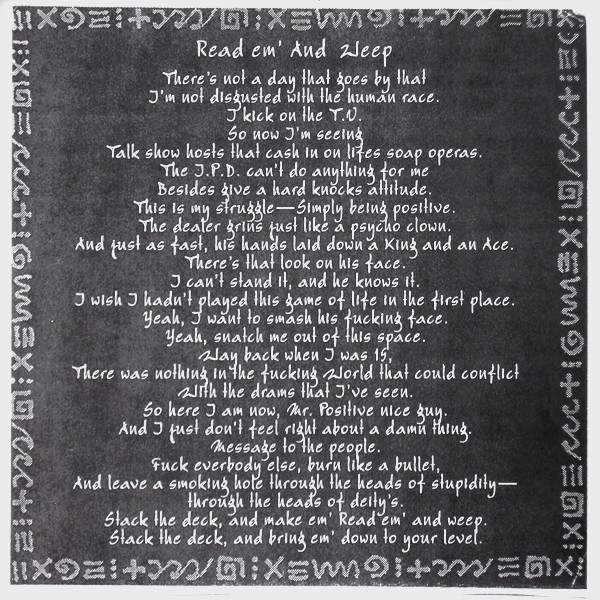 Read em' And Weep
There's not a day that goes by that
I'm not disgusted with the human race.
I kick on the T.V.
So now I'm seeing
Talk show hosts that cash in on lifes soap operas.
The I.P.D. can't do anything for me
Besides give a hard knocks attitude.
This is my struggle—Simply being positive.
The dealer grins just like a psycho clown.
And just as fast, his hands laid down a King and an Ace.
There's that look on his face.
I can't stand it, and he knows it.
I wish I hadn't played this game of life in the first place.
Yeah, I want to smash his fucking face.
Yeah, snatch me out of this space.
Way back when I was 15,
There was nothing in the fucking World that could conflict
With the drams that I've seen.
So here I am now, Mr. Positive nice guy.
And I just don't feel right about a damn thing.
Message to the people.
Fuck everbody else, burn like a bullet,
And leave a smoking hole through the heads of stupidity—
through the heads of deity's.
Stack the deck, and make em' Read em' and weep.
Stack the deck, and bring em' down to your level.